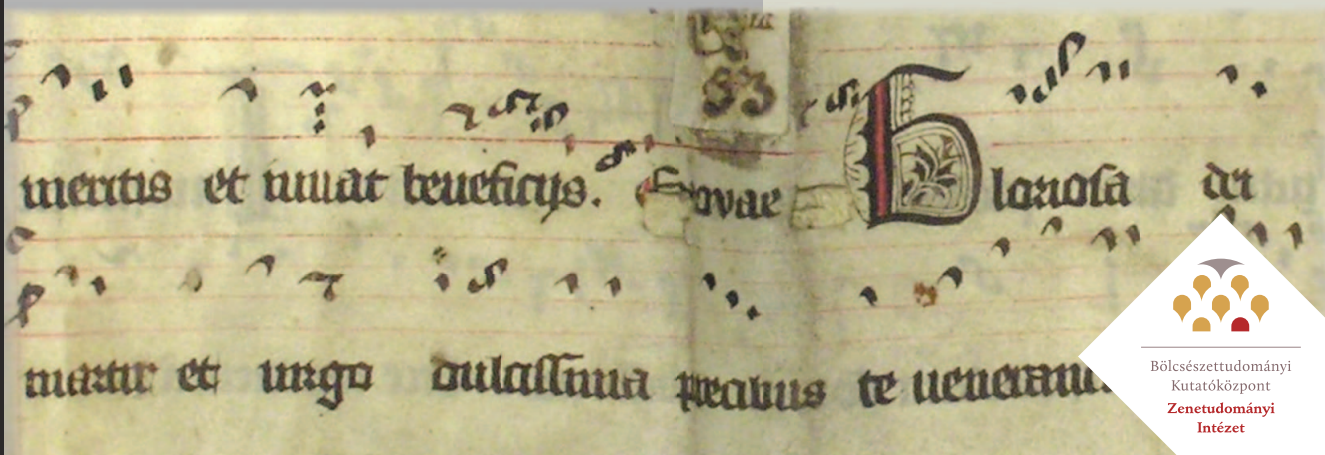 meritis et iuuat beneficijs. Evovae Gloriosa dei
martir et uirgo dulcissima precibus te
Bölcsészettudományi
Kutatóközpont
Zenetudományi
Intézet